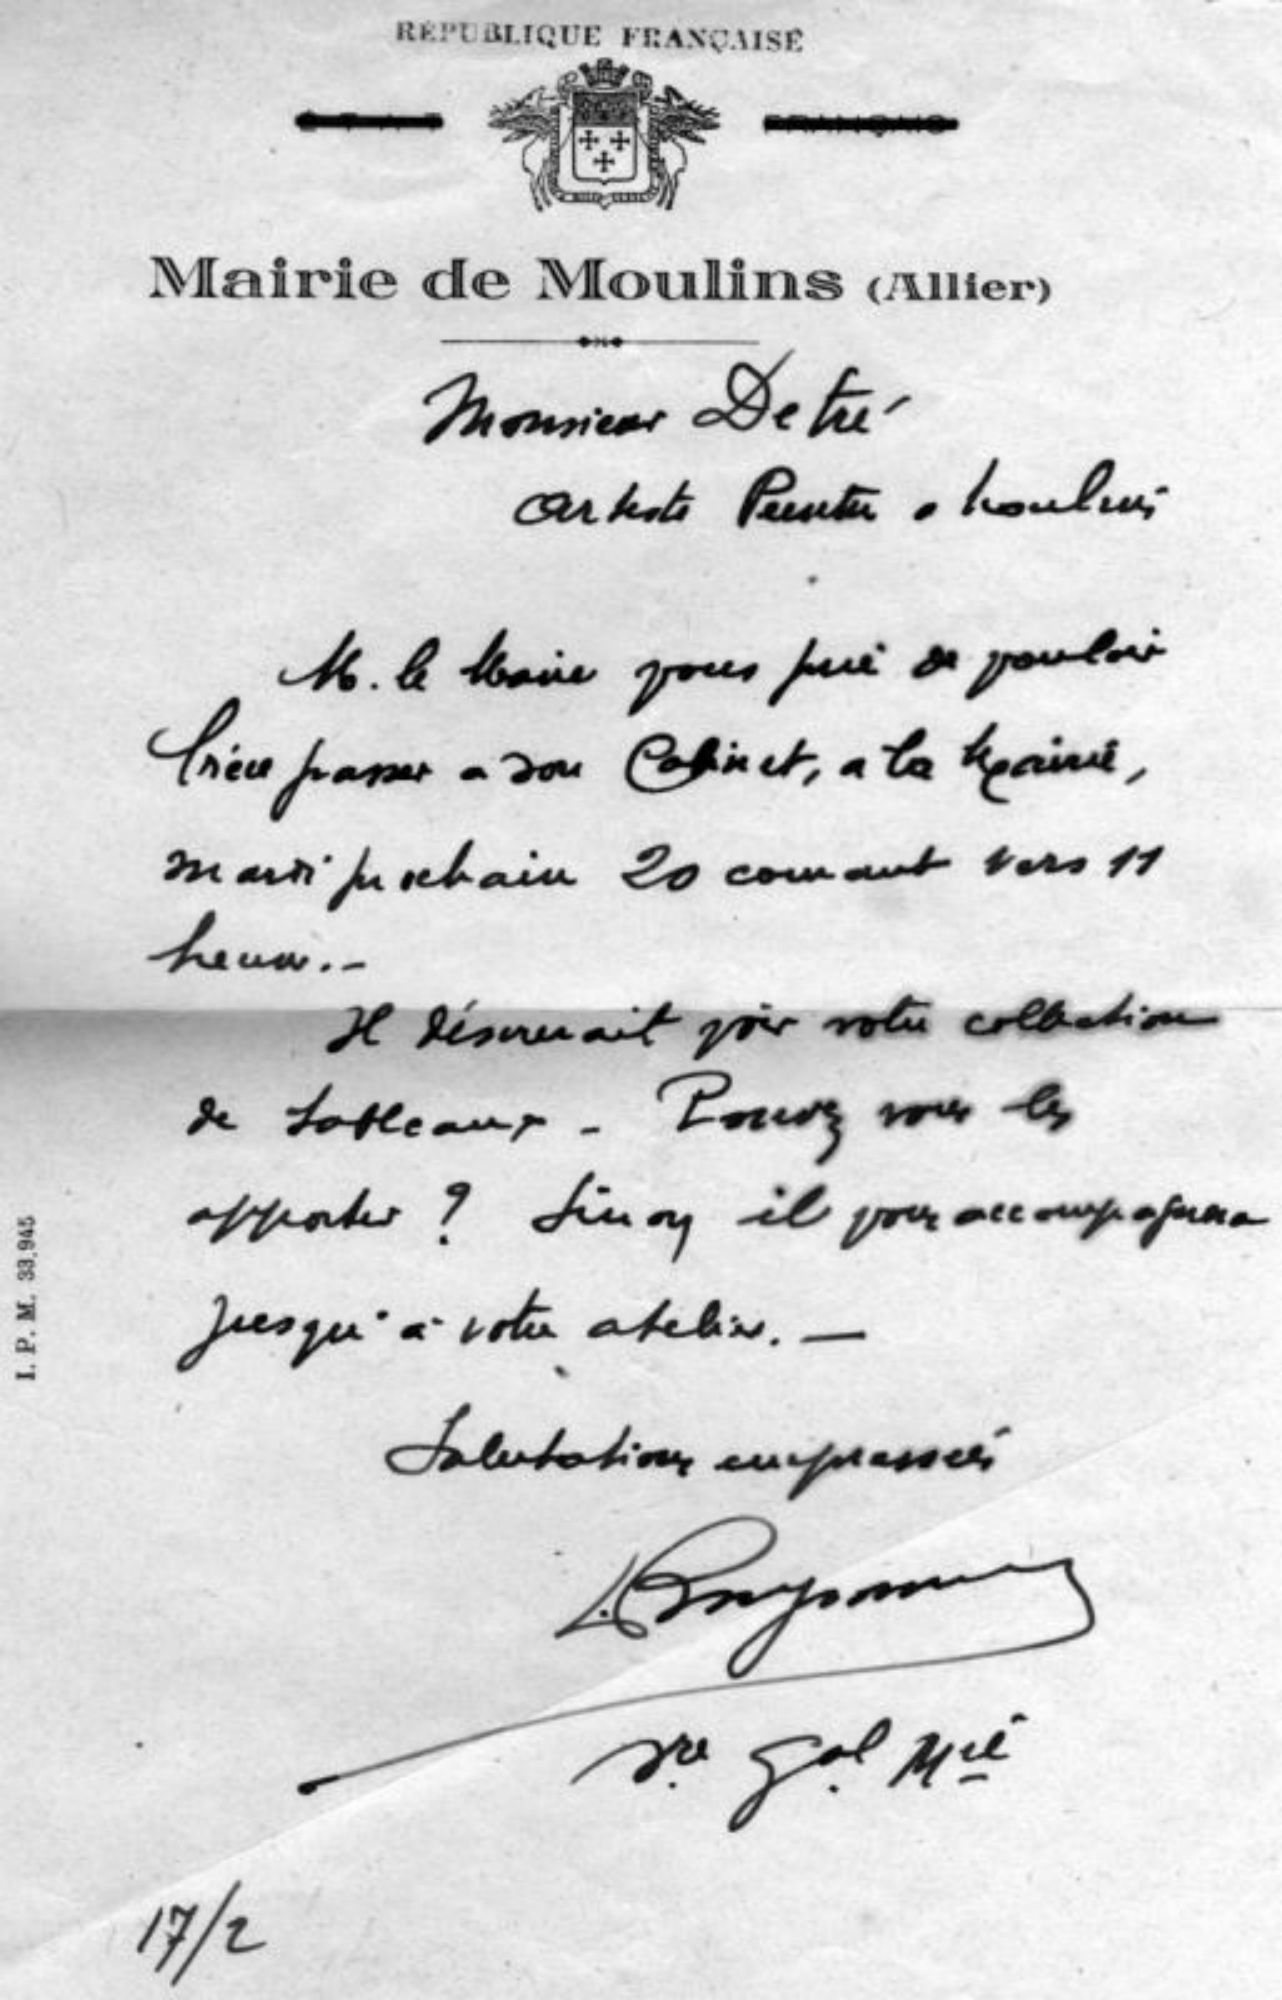 RÉPUBLIQUE FRANÇAISE
Mairie de Moulins (Allier)
Monsieur Detré
Artiste Peintre à Moulins
M. le Maire vous prie de vouloir
bien passer à son Cabinet, à la Mairie,
mardi prochain 20 courant vers 11
heures.-
Il désirerait voir votre collection
de tableaux - Pouvez vous les
apporter ? Sinon il vous accompagnera
jusqu'à votre atelier. —
Salutations empressées
L.
Sre Gal Mie
17/2
I. P. M. 33.945